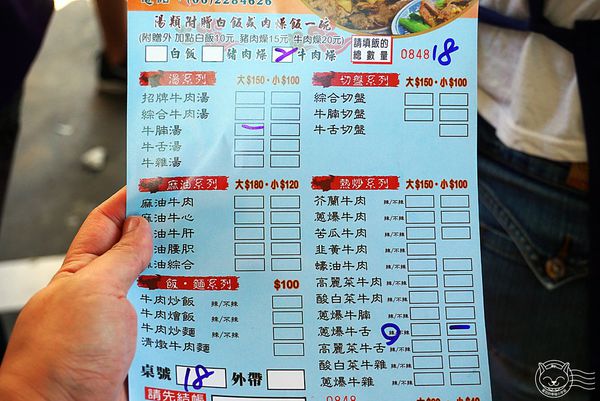 電話:(06)2284626
湯類附贈白飯或肉燥飯一碗
(附贈外 加點白飯10元. 豬肉燥15元. 牛肉燥20元)
白飯 豬肉燥 牛肉燥
請填飯的總數量 0848 18
湯系列 大$150・小$100
招牌牛肉湯
綜合牛肉湯
牛腩湯
牛舌湯
牛雜湯
切盤系列 大$150・小$100
綜合切盤
牛腩切盤
牛舌切盤
麻油系列 大$180・小$120
麻油牛肉
麻油牛心
麻油牛肝
麻油腰胘
麻油綜合
飯・麵系列 $100
牛肉炒飯 辣/不辣
牛肉燴飯 辣/不辣
牛肉炒麵 辣/不辣
清燉牛肉麵
熱炒系列 大$150・小$100
芥蘭牛肉 辣/不辣
蔥爆牛肉 辣/不辣
苦瓜牛肉 辣/不辣
韭黃牛肉
蠔油牛肉 辣/不辣
高麗菜牛肉 辣/不辣
酸白菜牛肉 辣/不辣
蔥爆牛腩 辣/不辣
蔥爆牛舌 辣/不辣
高麗菜牛舌 辣/不辣
酸白菜牛雜 辣/不辣
蔥爆牛雜 辣/不辣
桌號 18 外帶
請先結帳
0848